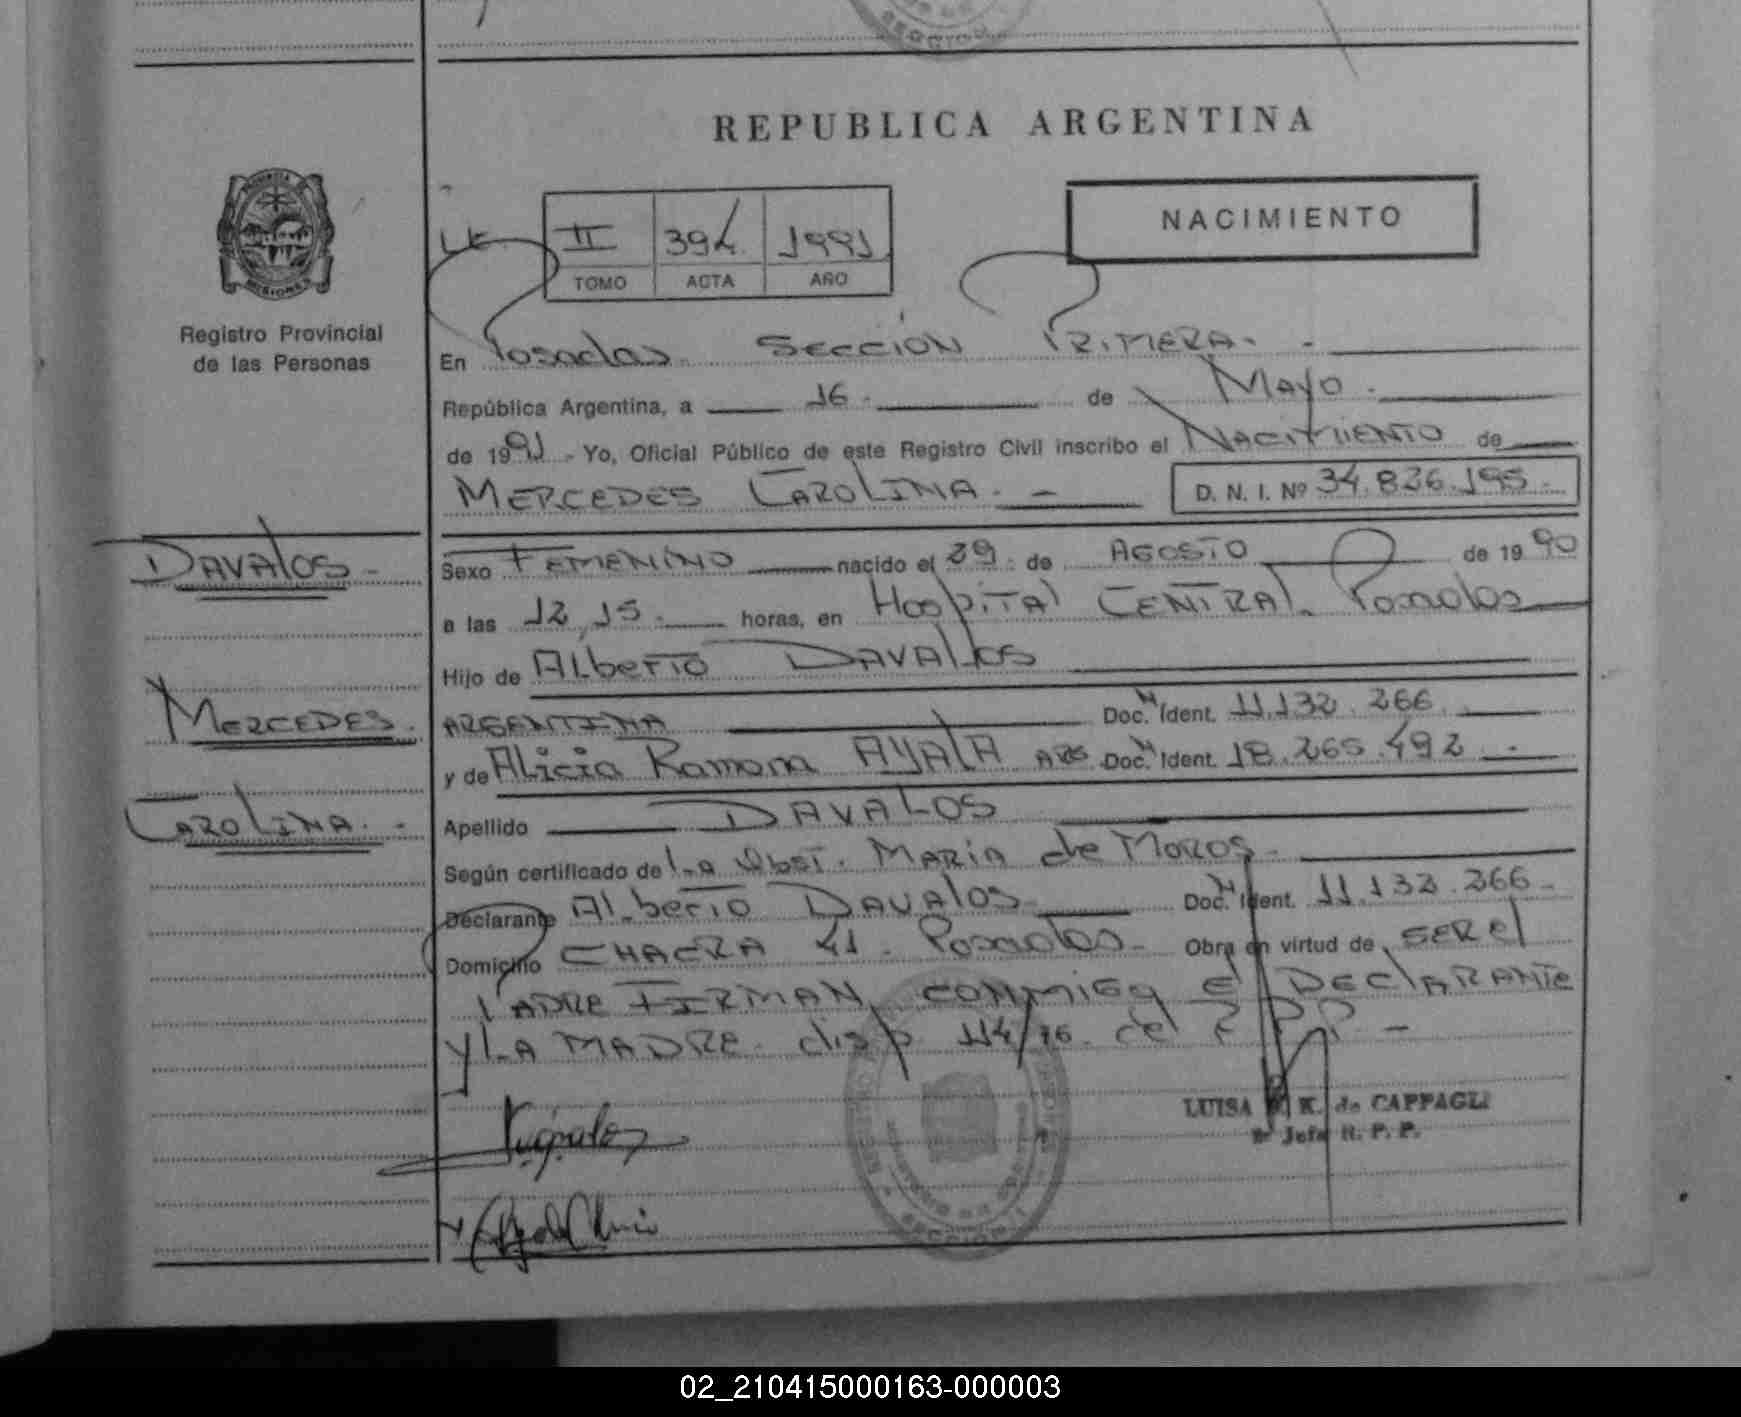 REPUBLICA ARGENTINA
PROVINCIA DE
MISIONES
Registro Provincial
de las Personas
II 394 1991
TOMO ACTA AÑO
NACIMIENTO
En Posadas Sección PRIMERA. -
República Argentina, a 16 de Mayo.
de 1991 - Yo, Oficial Público de este Registro Civil inscribo el NACIMIENTO de
MERCEDES CAROLINA. - D. N. I. Nº 34.826.195
DAVALOS -
MERCEDES.
CAROLINA. -
Sexo FEMENINO nacido el 29 de AGOSTO de 1990
a las 12,15. horas, en HospiTAl CENTRAL. Posadas
Hijo de AlberTO DAVALOS
ARGENTINA Doc. Ident. 11.132.266
y de Alicia Ramona AYALA ARG. Doc. Ident. 18.265.492 -
Apellido DAVALOS
Según certificado de LA Obst. MARIA de MOROS -
Declarante AlberTO DAVALOS Doc. Ident. 11.132.266 -
Domicilio CHACRA 41. Posadas - Obra en virtud de SER el
PADRE FIRMAN CONMIGO El DEClARANTE
y LA MADRE. disp 114/76. del R.P.P. -
LUISA K. de CAPPAGLI
Jefe R. P. P.
SECCION 1
02_210415000163-000003